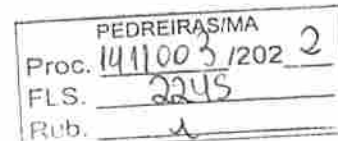 PEDREIRAS/MA
Proc. 1411003/2022
FLS. 2245
Rub.